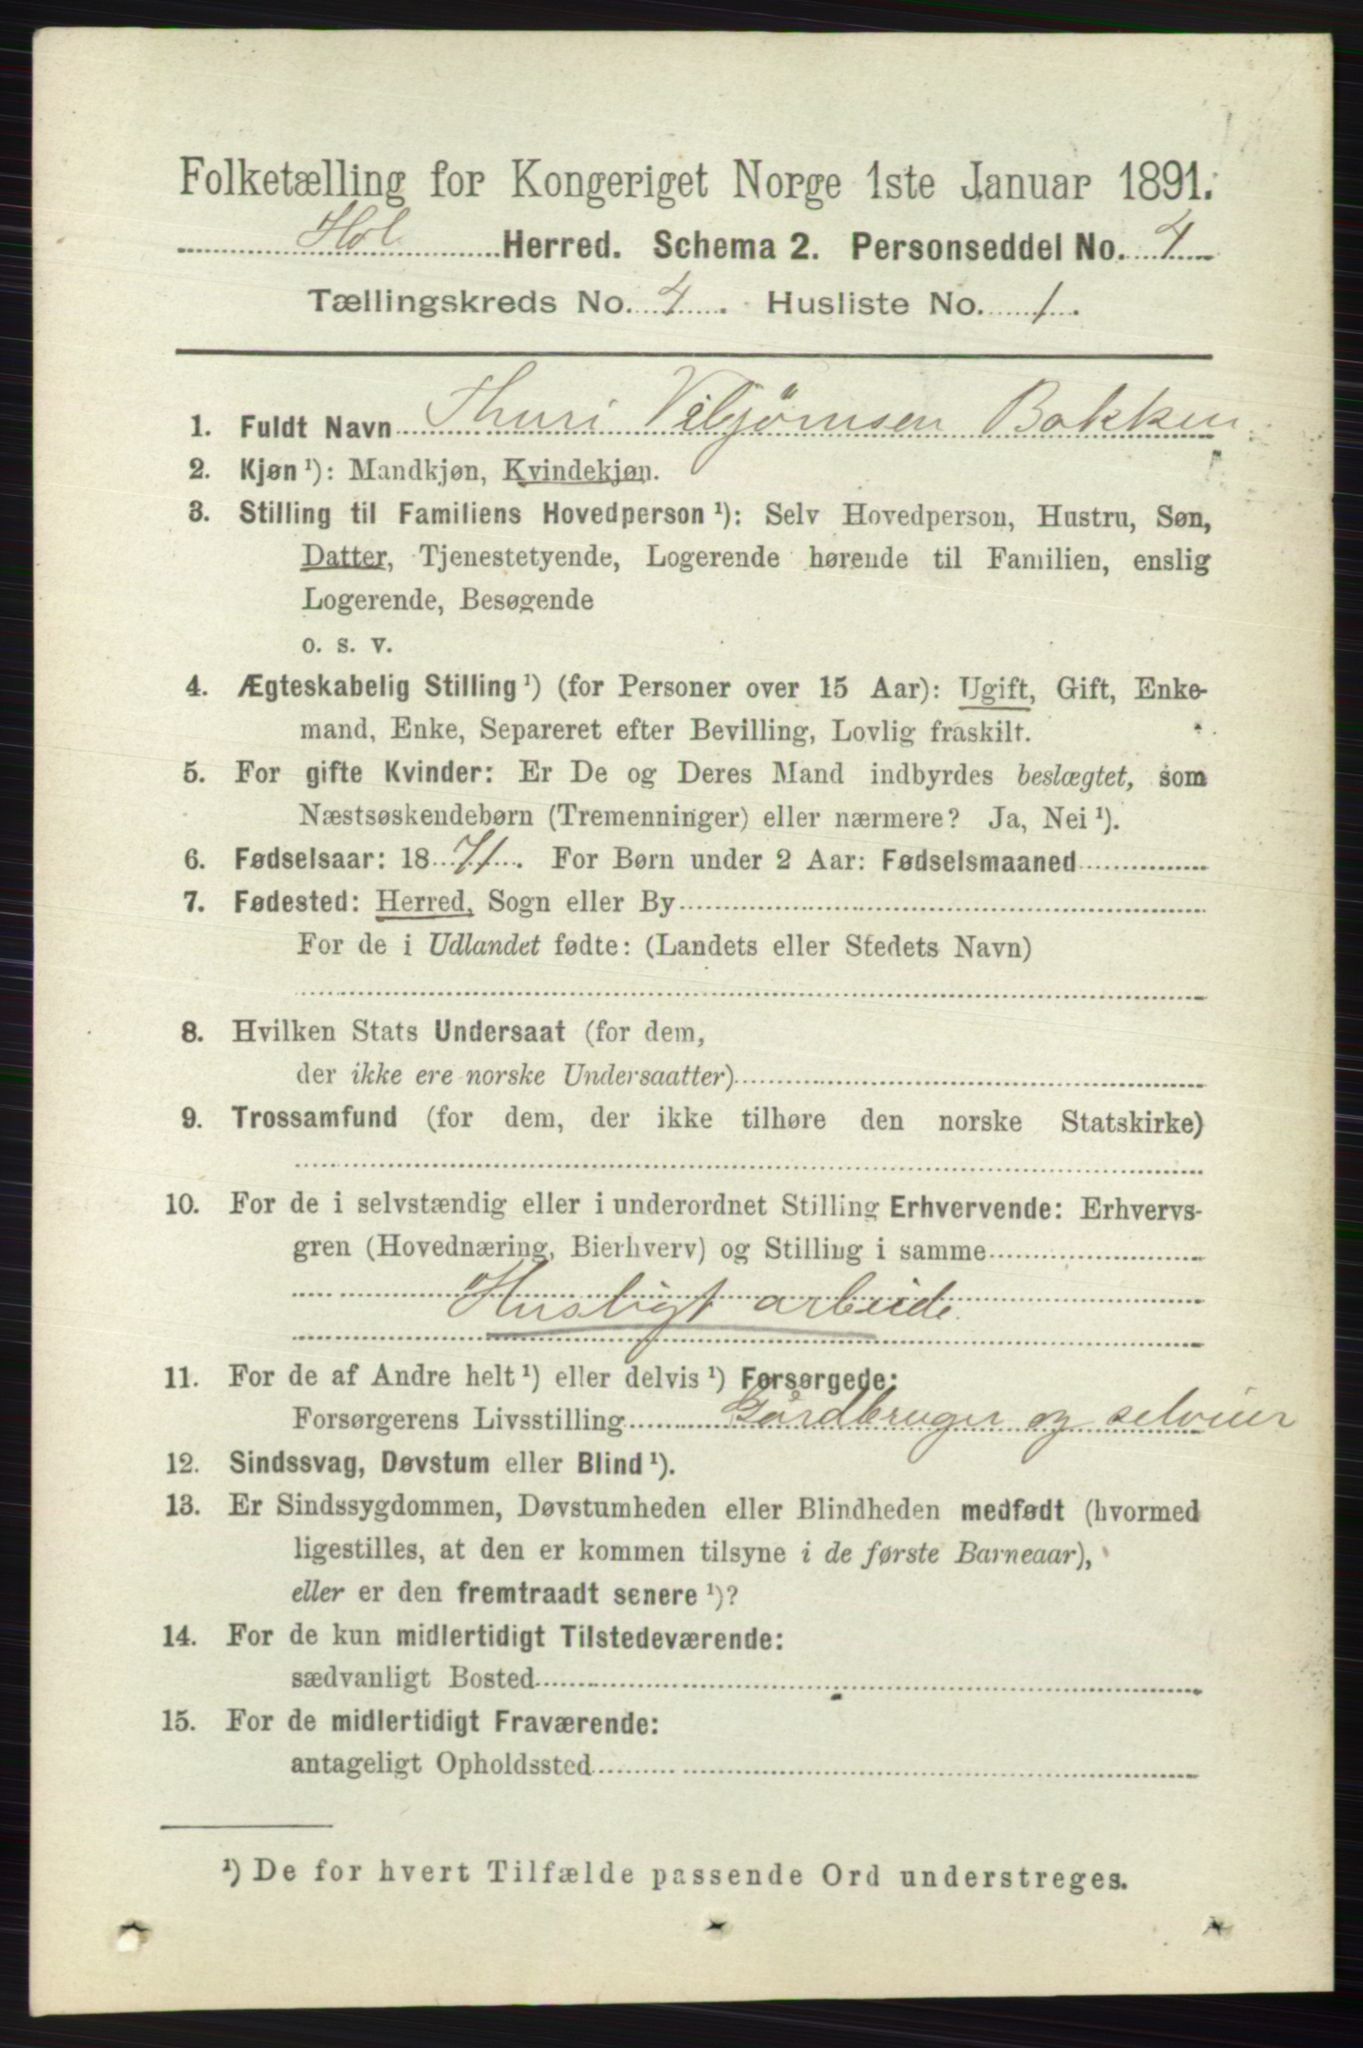 Folketælling for Kongeriget Norge 1ste Januar 1891.
Hol Herred. Schema 2. Personseddel No. 4
Tællingskreds No. 4. Husliste No. 1.
1. Fuldt Navn Thuri Vebjørnsen Bakken
2. Kjøn¹): Mandkjøn, Kvindekjøn.
3. Stilling til Familiens Hovedperson¹): Selv Hovedperson, Hustru, Søn,
Datter, Tjenestetyende, Logerende hørende til Familien, enslig
Logerende, Besøgende
o. s. v.
4. Ægteskabelig Stilling¹) (for Personer over 15 Aar): Ugift, Gift, Enke-
mand, Enke, Separeret efter Bevilling, Lovlig fraskilt.
5. For gifte Kvinder: Er De og Deres Mand indbyrdes beslægtet, som
Næstsøskendebørn (Tremenninger) eller nærmere? Ja, Nei¹).
6. Fødselsaar: 1871. For Børn under 2 Aar: Fødselsmaaned
7. Fødested: Herred, Sogn eller By
For de i Udlandet fødte: (Landets eller Stedets Navn)
8. Hvilken Stats Undersaat (for dem,
der ikke ere norske Undersaatter)
9. Trossamfund (for dem, der ikke tilhøre den norske Statskirke)
10. For de i selvstændig eller i underordnet Stilling Erhvervende: Erhvervs-
gren (Hovednæring, Bierhverv) og Stilling i samme
Husligt arbeide.
11. For de af Andre helt¹) eller delvis¹) Forsørgede:
Forsørgerens Livsstilling Gårdbruger og selveier
12. Sindssvag, Døvstum eller Blind¹).
13. Er Sindssygdommen, Døvstumheden eller Blindheden medfødt (hvormed
ligestilles, at den er kommen tilsyne i de første Barneaar),
eller er den fremtraadt senere¹)?
14. For de kun midlertidigt Tilstedeværende:
sædvanligt Bosted
15. For de midlertidigt Fraværende:
antageligt Opholdssted
¹) De for hvert Tilfælde passende Ord understreges.